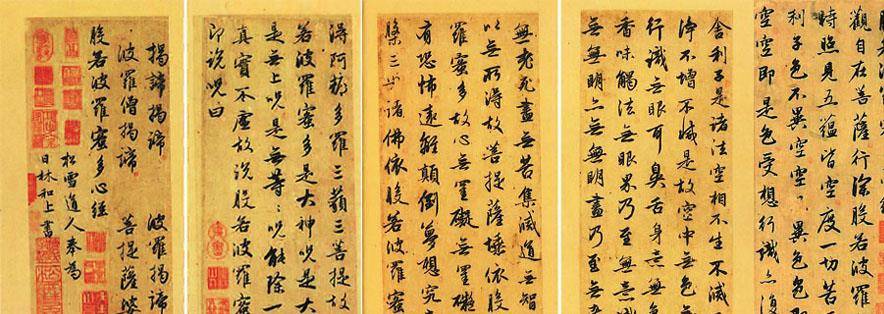 觀自在菩薩行深般若波羅
時照見五蘊皆空度一切苦
利子色不異空空不異色色即
空空即是色受想行識亦復
舍利子是諸法空相不生不滅
淨不增不減是故空中無色無
行識無眼耳鼻舌身意無色
香味觸法無眼界乃至無意識
無無明亦無無明盡乃至無
無老死盡無苦集滅道無智
以無所得故菩提薩埵依般
羅蜜多故心無罣礙無罣礙
有恐怖遠離顛倒夢想究
槃三世諸佛依般若波羅蜜
得阿耨多羅三藐三菩提故
若波羅蜜多是大神呪是大
是無上呪是無等〻呪能除一
真實不虛故說般若波羅蜜
即說呪曰
揭諦揭諦 波羅揭諦
波羅僧揭諦 菩提薩婆
般若波羅蜜多心經
松雪道人奉為
日林和上書